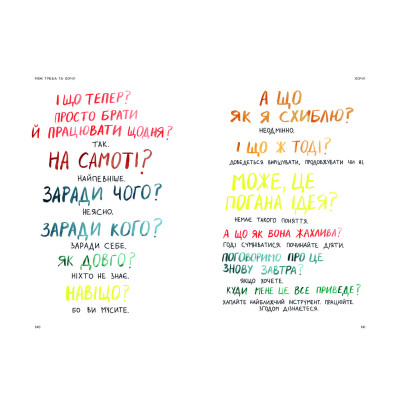 МІЖ ТРЕБА ТА ХОЧУ
І ЩО ТЕПЕР?
ПРОСТО БРАТИ
Й ПРАЦЮВАТИ ЩОДНЯ?
ТАК.
НА САМОТІ?
НАЙПЕВНІШЕ.
ЗАРАДИ ЧОГО?
НЕЯСНО.
ЗАРАДИ КОГО?
ЗАРАДИ СЕБЕ.
ЯК ДОВГО?
НІХТО НЕ ЗНАЄ.
НАВІЩО?
БО ВИ МУСИТЕ.
140
ХОЧУ
А ЩО
ЯК Я СХИБЛЮ?
НЕОДМІННО.
І ЩО Ж ТОДІ?
ДОВЕДЕТЬСЯ ВИРІШУВАТИ, ПРОДОВЖУВАТИ ЧИ НІ.
МОЖЕ, ЦЕ
ПОГАНА ІДЕЯ?
НЕМАЄ ТАКОГО ПОНЯТТЯ.
А ЩО ЯК ВОНА ЖАХЛИВА?
ГОДІ СУМНІВАТИСЯ. ПОЧИНАЙТЕ ДІЯТИ.
ПОГОВОРИМО ПРО ЦЕ
ЗНОВУ ЗАВТРА?
ЯКЩО ХОЧЕТЕ.
КУДИ МЕНЕ ЦЕ ВСЕ ПРИВЕДЕ?
ХАПАЙТЕ НАЙБЛИЖЧИЙ ІНСТРУМЕНТ. ПРАЦЮЙТЕ.
ЗГОДОМ ДІЗНАЄТЕСЯ.
141